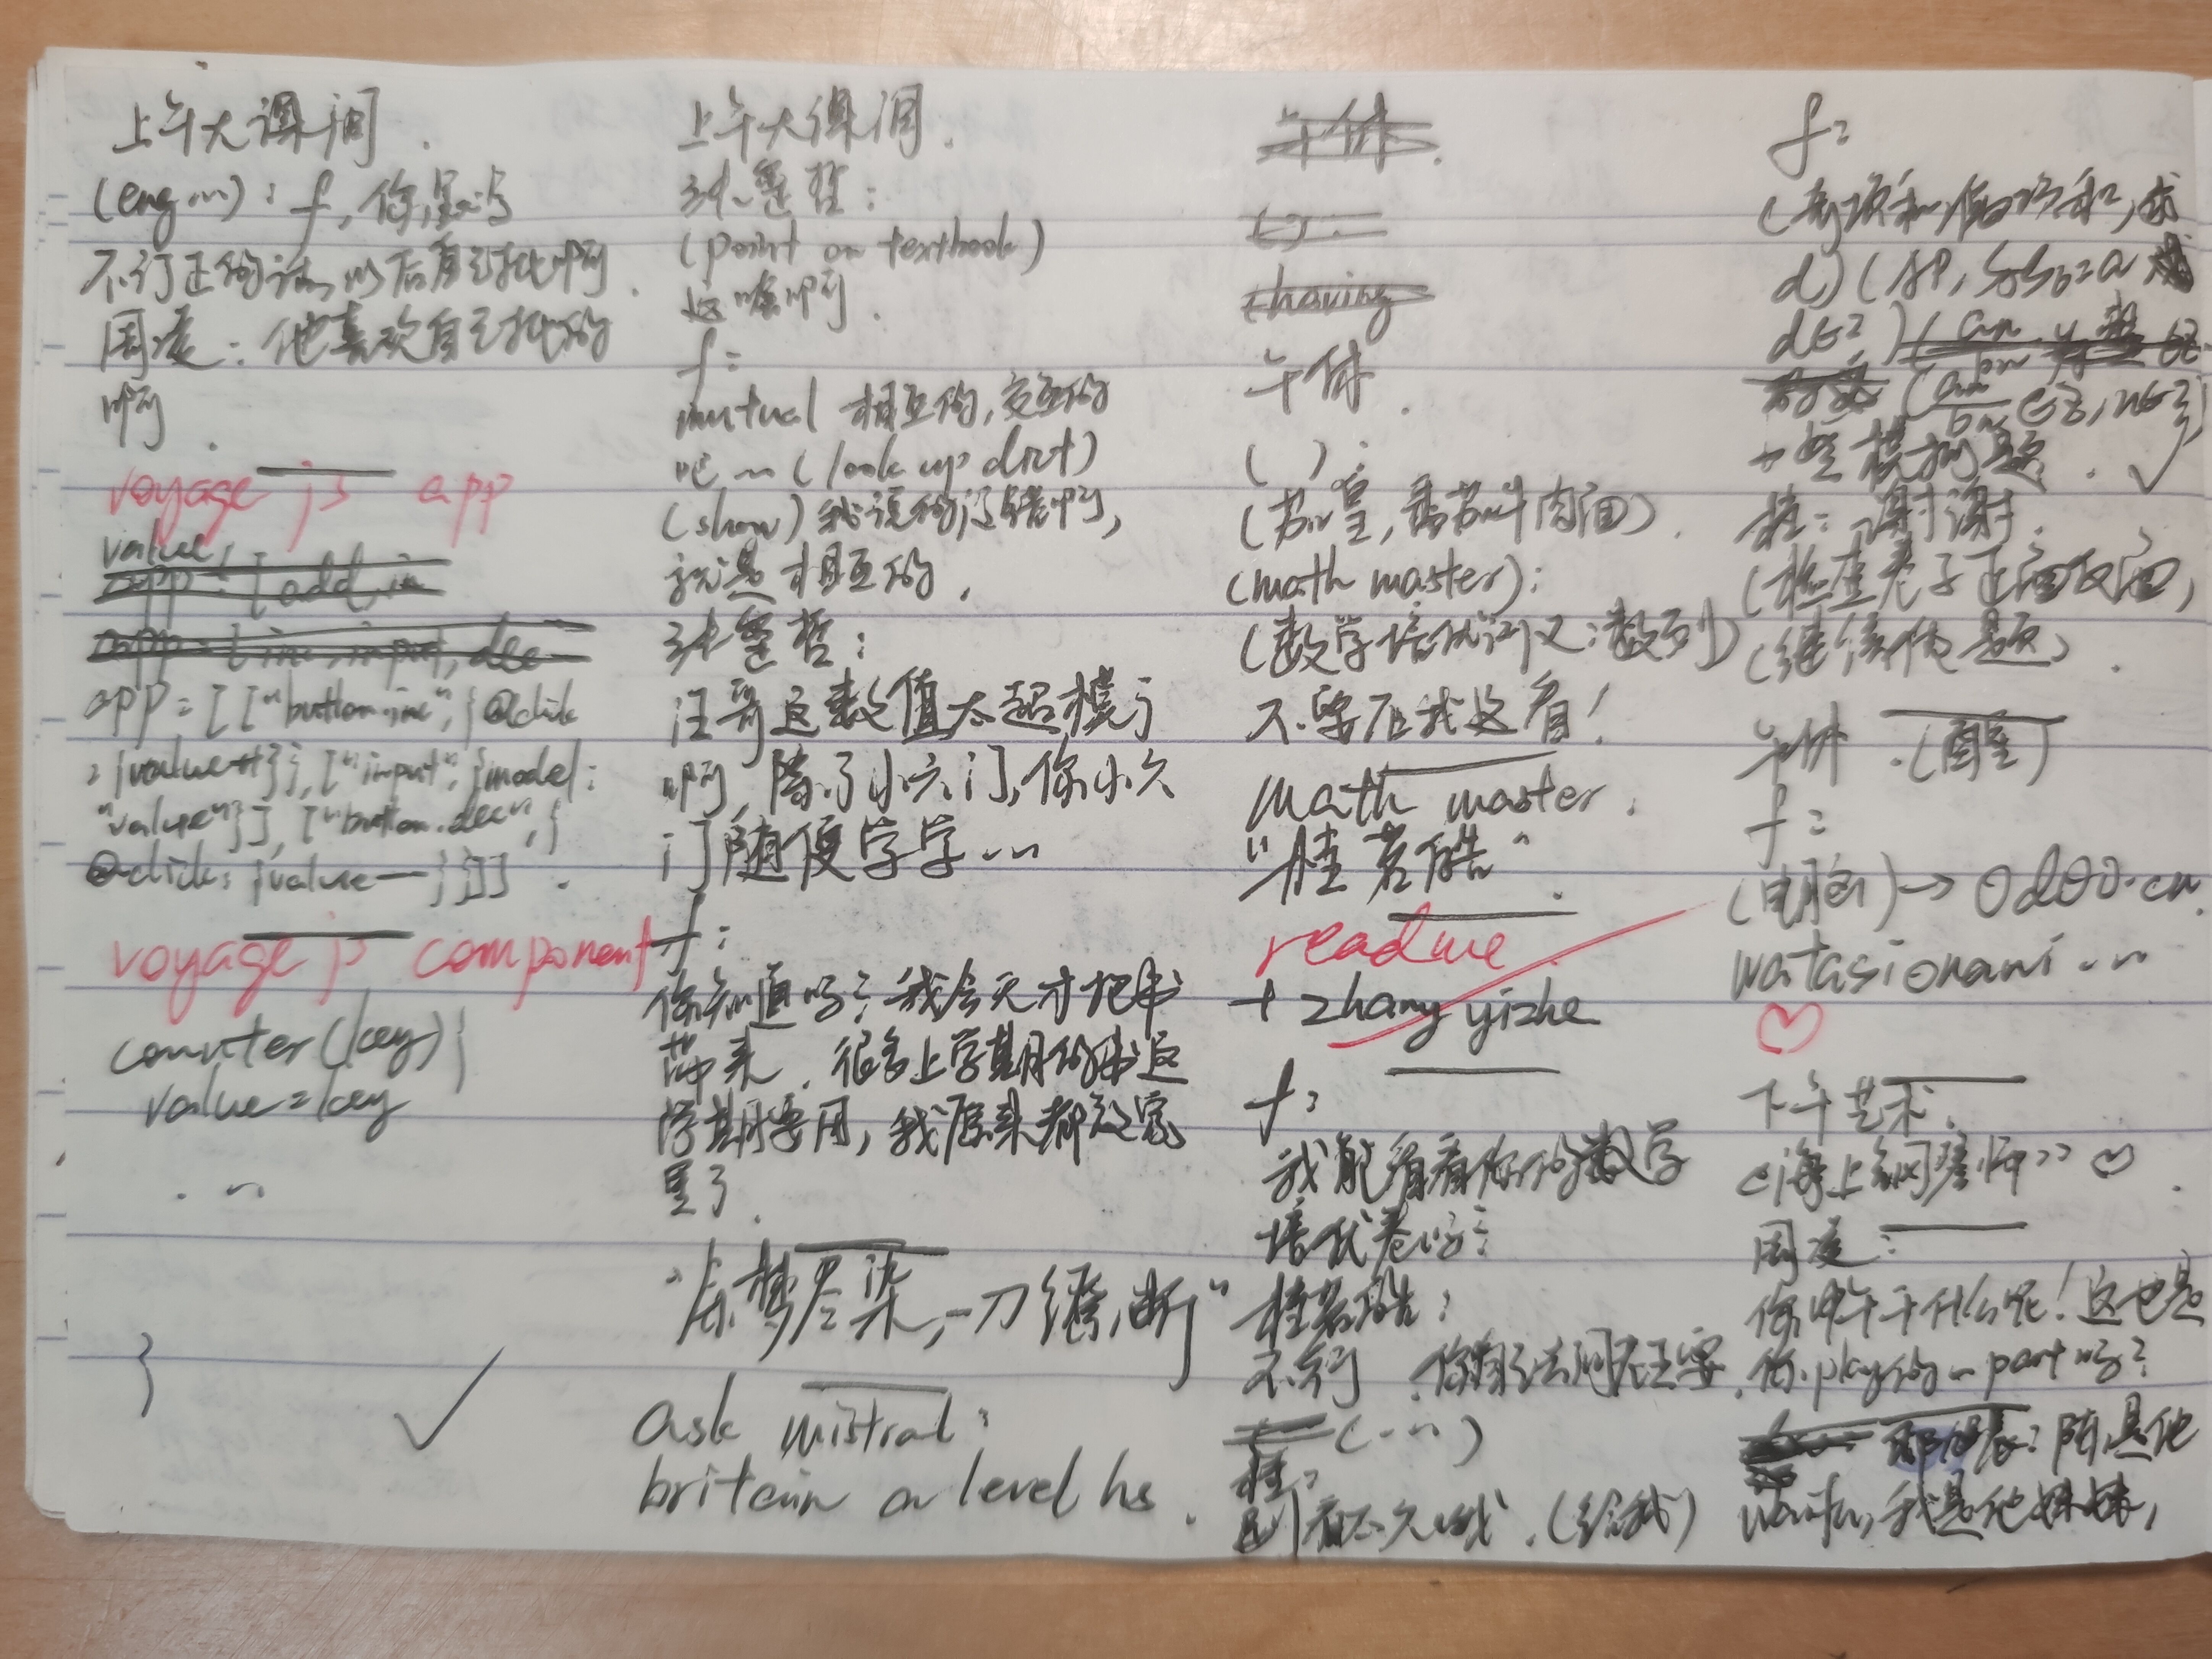 上午大课间.
(eng...): f, 你
不订正的话, 以后自己批啊.
周凌: 他喜欢自己批的
啊.
voyage js app
value;
app = [add, in
app = [inc, input, dec
app = [["button.inc", {@click
: {value++}}, ["input", {model:
"value"}], ["button.dec", {
@click: {value--}}]] .
voyage js component
counter(key){
value = key
...
}
上午大课间.
张壹哲:
(point on textbook)
这啥啊.
f:
mutual 相互的, 交互的
吧...(look up dict)
(show) 我说的没错啊,
就是相互的.
张壹哲:
汪哥这数值太超模了
啊, 除了小六门, 你小六
门随便学学...
f:
你知道吗? 我今天才把书
带来. 很多上学期的书这
学期要用, 我原来都放家
里了.
一刀缝断"
ask mistral:
britain a level hs.
午休.
( ):
(having
午休.
( ):
番茄牛肉面).
(math master):
(数学培优讲义: 数列)
不要在我这看!
math master:
"桂茗皓".
readme
+ zhang yizhe
f:
我能看看你的数学
培优卷吗?
桂茗皓:
不行.
(...)
桂:
别看太久哦. (给我)
f:
(奇项和偶项和, 求
d) (AP,
d∈Z)
(an/bn ∈ Z, n∈Z)
一些模拟题. ✓
桂: 谢谢.
(检查卷子正面反面,
(继续做题).
午休.(醒)
f:
(电脑) → odoo.cn.
watasionani...
♡
下午艺术.
《海上钢琴师》♡.
周凌:
你中午干什么呢! 这也是
你play的一part吗?
陈是他
waifu, 我是他妹妹,